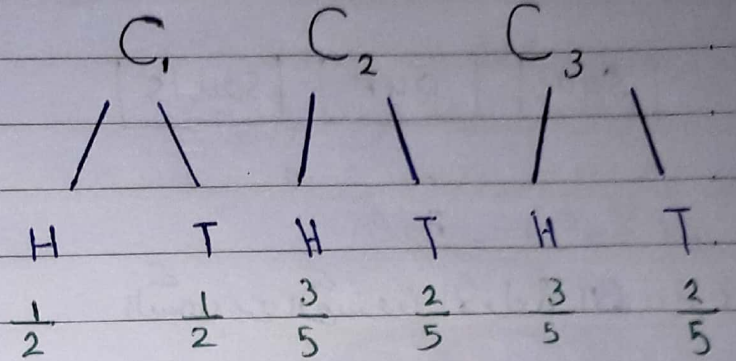 C₁ C₂ C₃
H T H T H T
1/2 1/2 3/5 2/5 3/5 2/5